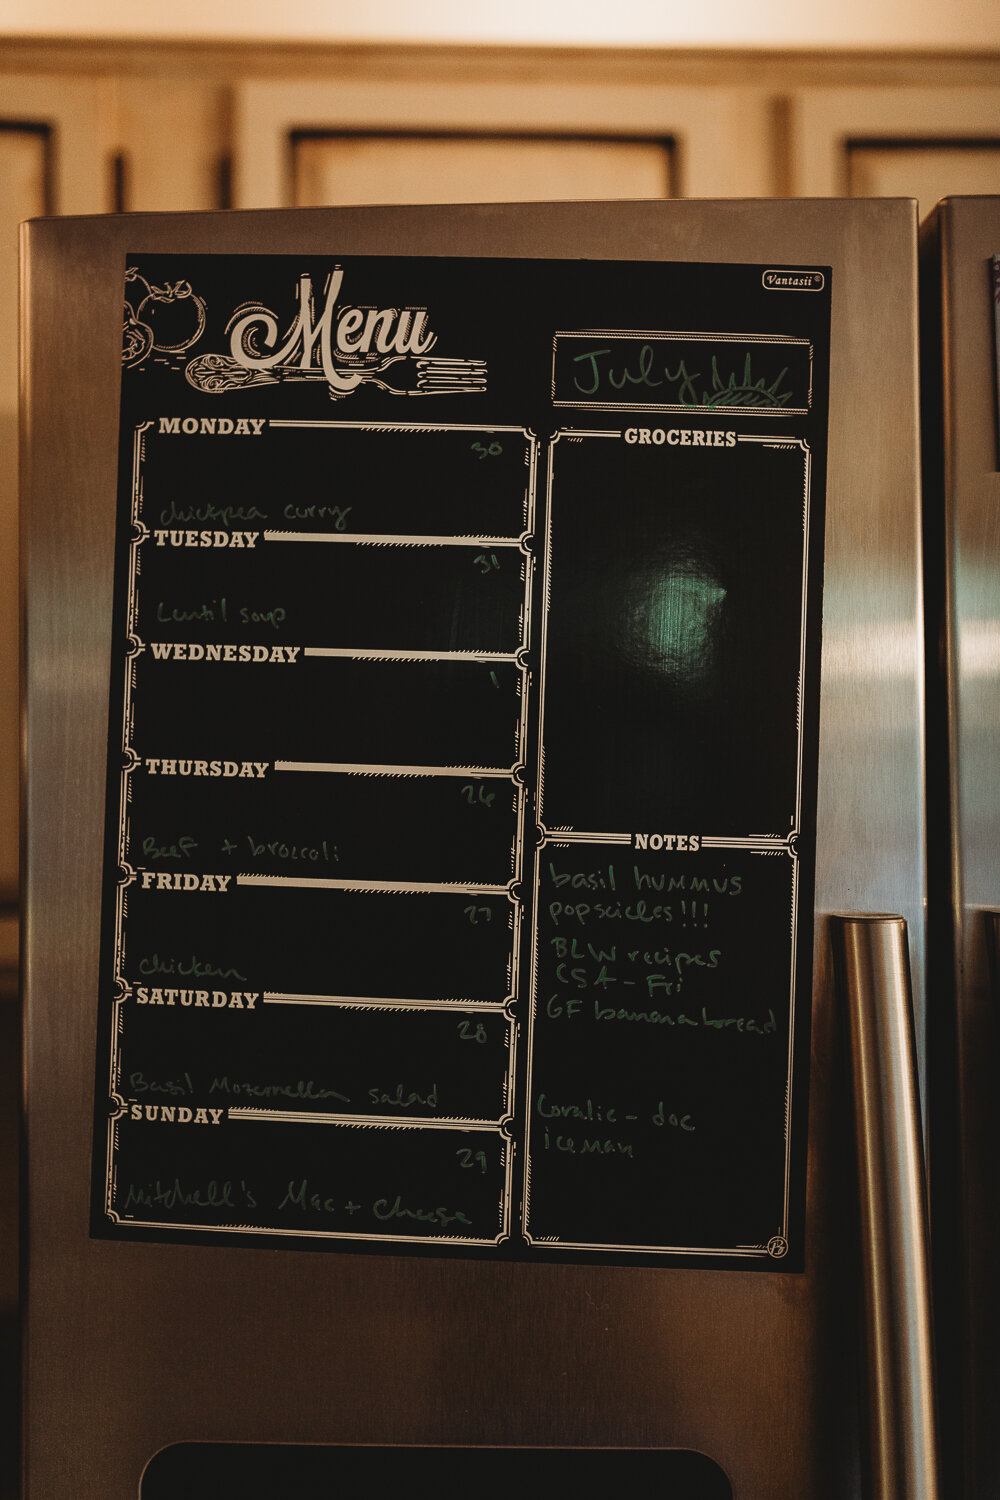 Vantasii®
Menu
July
MONDAY
30
chickpea curry
TUESDAY
31
Lentil soup
WEDNESDAY
1
THURSDAY
26
Beef + broccoli
FRIDAY
27
chicken
SATURDAY
28
Basil Mozerrella salad
SUNDAY
29
Mitchell's Mac + Cheese
GROCERIES
NOTES
basil hummus
popscicles!!!
BLW recipes
CSA - Fri
GF banana bread
Coralie - doc
iceman